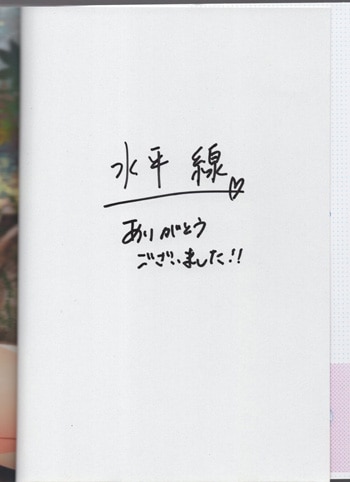 水平線♡
ありがとう
ございました!!